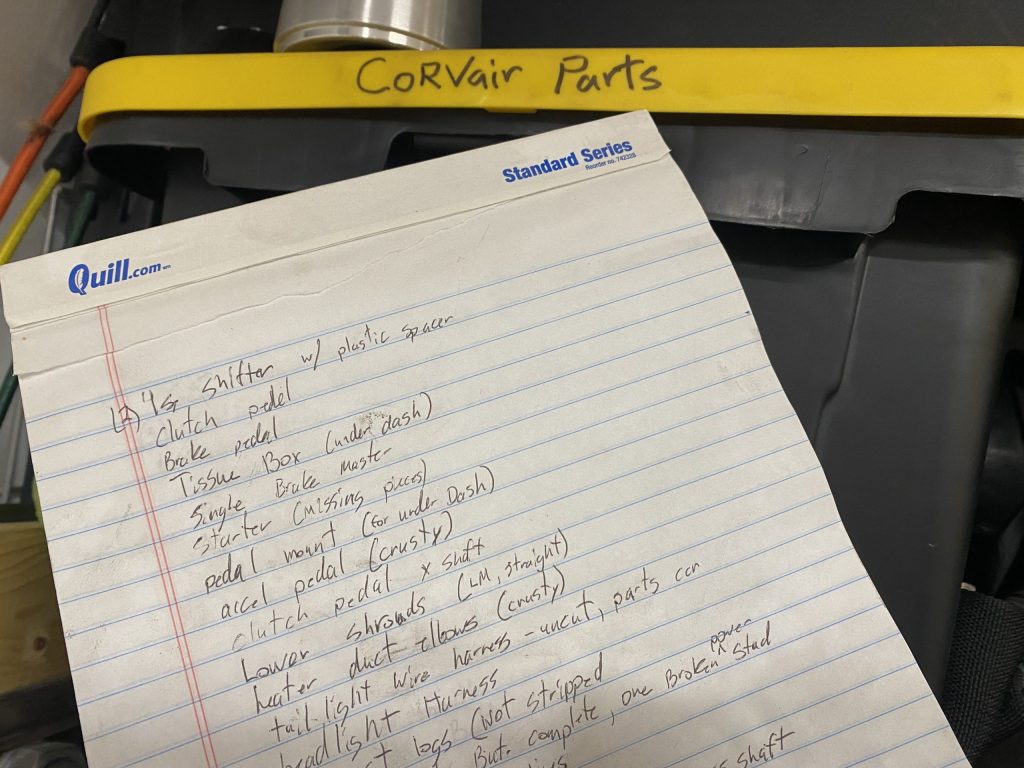 CORVair Parts
Standard Series
Reorder no. 742328
Quill.com
(2) 4sp shifter w/ plastic spacer
Clutch pedel
Brake pedal
Tissue Box (under dash)
Single Brake master
starter (missing pieces)
pedal mount (for under Dash)
accel pedal (crusty)
clutch pedal x shaft
Lower shrouds (LM, straight)
heater duct elbows (crusty)
tail-light wire harness - uncut, parts car
headlight Harness
logs (not stripped
But complete, one Broken power stud
shaft